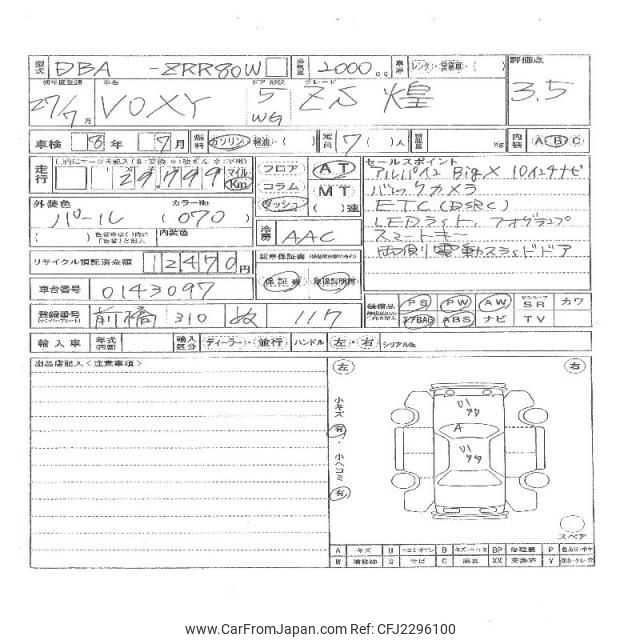 型式 DBA -ZRR80W 排気量 2000 cc 車歴 レンタ・営業車・( ) 評価点
初年度登録 車名 ドア 形状 グレード
27/7月 VOXY 5 WG ZS 煌 3.5
車検 8年 7月 燃料 ガソリン 軽油・( ) 定員 7( )人 積載量 Kg 内装 A B C
走行 29,799 マイル Km
フロア AT セールスポイント
コラム MT アルパイン Big X 10インチナビ
ダッシュ ( )速 バックカメラ
外装色 カラーNo ETC(DSRC)
パール (070) LEDライト、フォグランプ
内装色 冷房 AAC スマートキー
両側電動スライドドア
リサイクル預託済金額 12470円 新車保証書
保証書 取扱説明書
車台番号 0143097
登録番号 前橋 310 ぬ 117
装備品 PS PW AW サンルーフ SR カワ
エアBAG ABS ナビ TV
輸入車 年式 輸入区分 ディーラー・並行 ハンドル 左・右 シリアルNo.
出品店記入<注意事項>
左 右
小キズ 有・小ヘコミ 有
A
スペア
A キズ U B BP P
W S サビ C XX 交換済 Y
www.CarFromJapan.com Ref: CFJ2296100